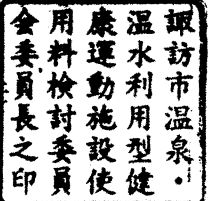 諏訪市温泉・
温水利用型健
康運動施設使
用料検討委員
会委員長之印